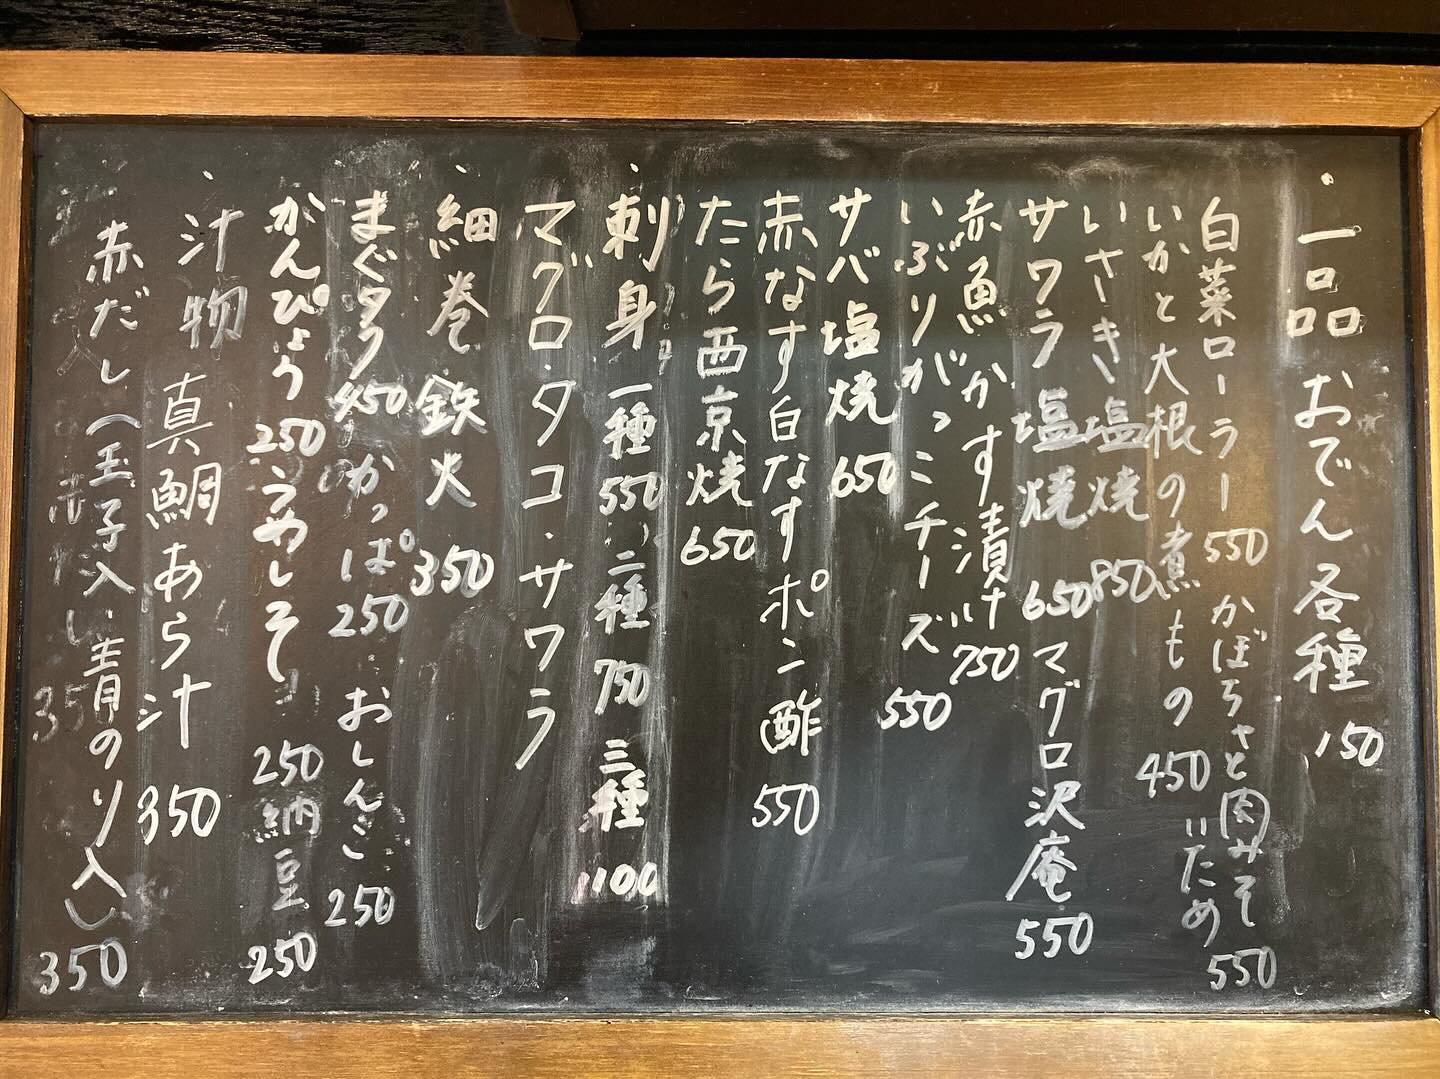 ・一品 おでん各種 150
白菜ローラー 550 かぼちゃと肉みそいため 550
いかと大根の煮もの 450
いさき塩焼 850
サワラ塩焼 650 マグロ沢庵 550
赤魚かす漬け 750
いぶりがっこチーズ 550
サバ塩焼 650
赤なす白なすポン酢 550
たら西京焼 650
・刺身 一種 550 二種 750 三種 1100
マグロ・タコ・サワラ
・細巻 鉄火 350
まぐタク 450 かっぱ 250 おしんこ 250
かんぴょう 250 うめしそ 250 納豆 250
・汁物 真鯛あら汁 350
赤だし(玉子入り、青のり入り) 350